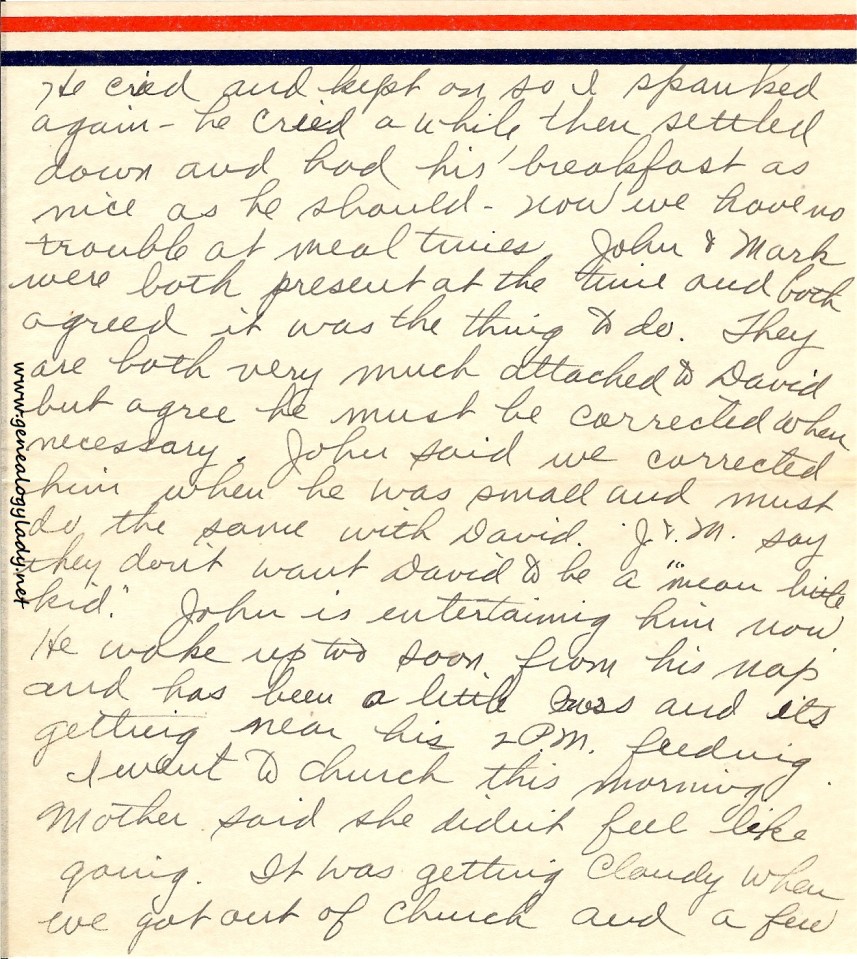 He cried and kept on so I spanked
again - he cried a while, then settled
down and had his breakfast as
nice as he should - now we have no
trouble at meal times John & Mark
were both present at the time and both
agreed it was the thing to do. They
are both very much attached to David
but agree he must be corrected when
necessary. John said we corrected
him when he was small and must
do the same with David. J. & M. say
they don't want David to be a "mean little
kid." John is entertaining him now
He woke up too soon from his nap
and has been a little cross and its
getting near his 2 P.M. feeding.
I went to church this morning.
Mother said she didn't feel like
going. It was getting cloudy when
we got out of church and a few
www.genealogylady.net